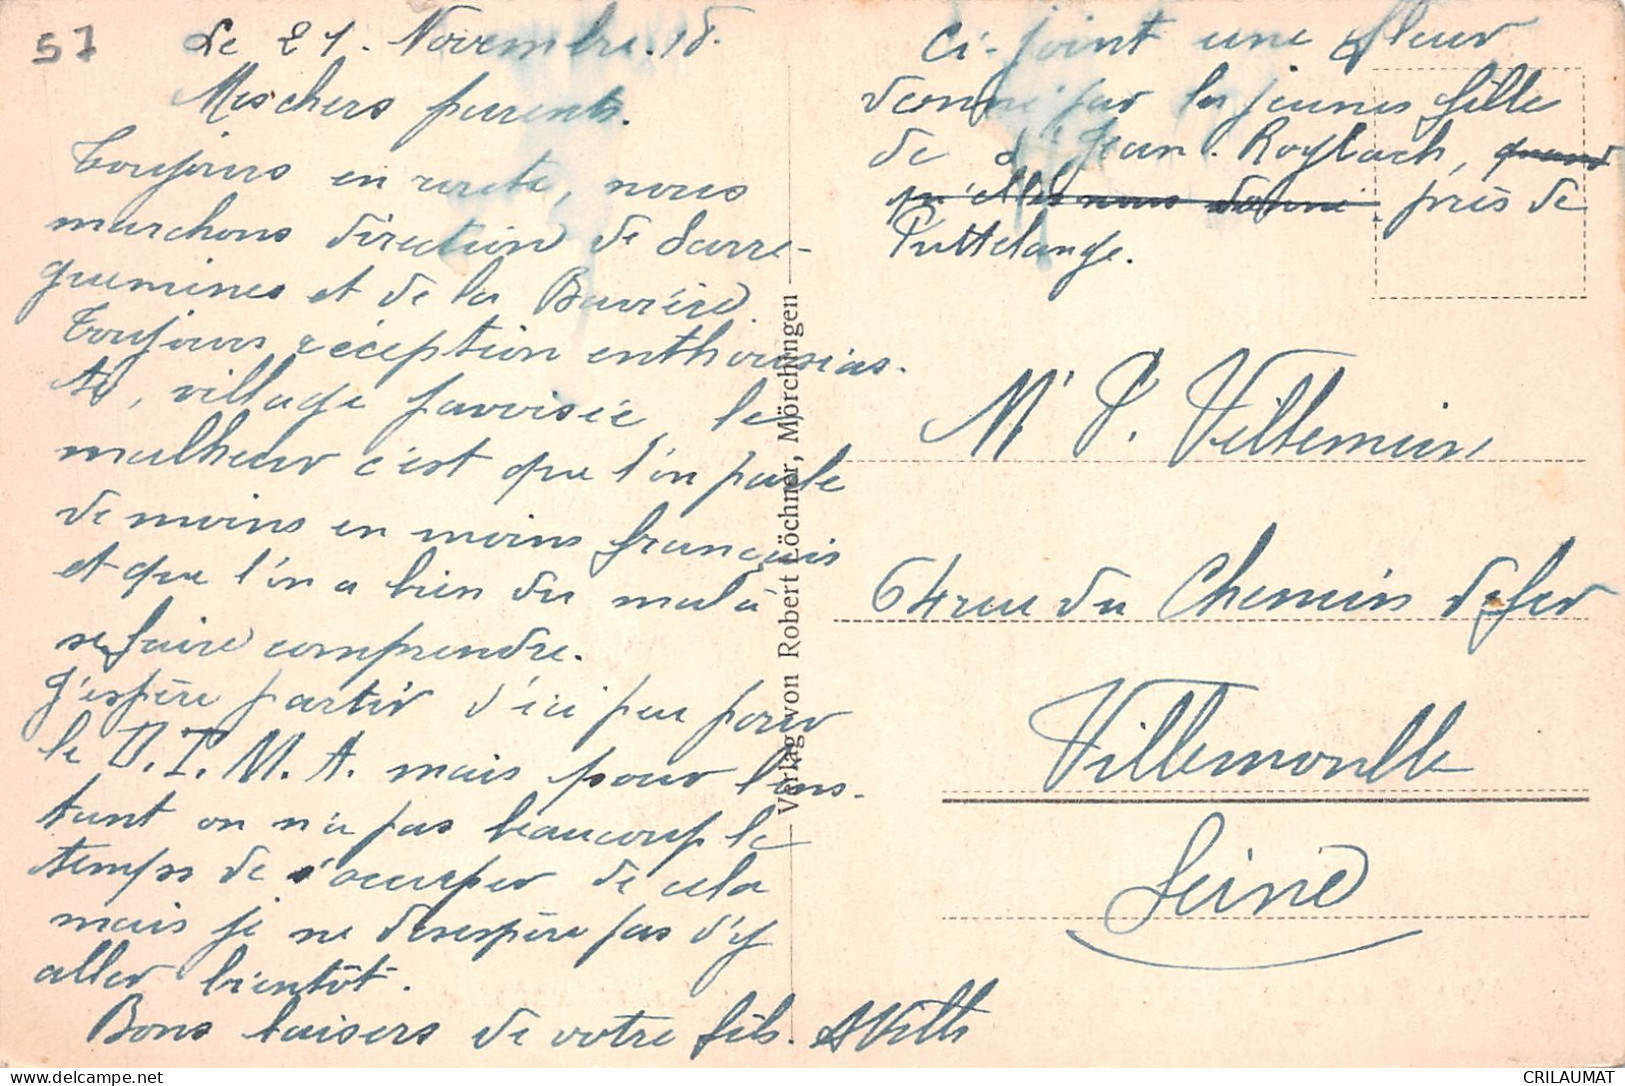 57
Le 21. Novembre. 18.
Mes chers parents.
Toujours en route, nous
marchons direction de Sarre-
guemines et de la Bavière.
Toujours réception enthousias-
te, village pavoisée, le
malheur c'est que l'on parle
de moins en moins français
et que l'on a bien du mal à
se faire comprendre.
J'espère partir d'ici peu pour
le D.I.M.A. mais pour l'ins-
tant on n'a pas beaucoup le
temps de s'occuper de cela
mais je ne desespère pas d'y
aller bientôt.
Bons baisers de votre fils.
Verlag von Robert Löchner, Mörchingen
Ci-joint une fleur
donné par les jeunes fille
de St Jean. Roylbach, quand
qu'elles nous donné près de
Puttelange.
Mr P. Villemin
64 rue du Chemin de fer
Villemomble
Seine
CRILAUMAT